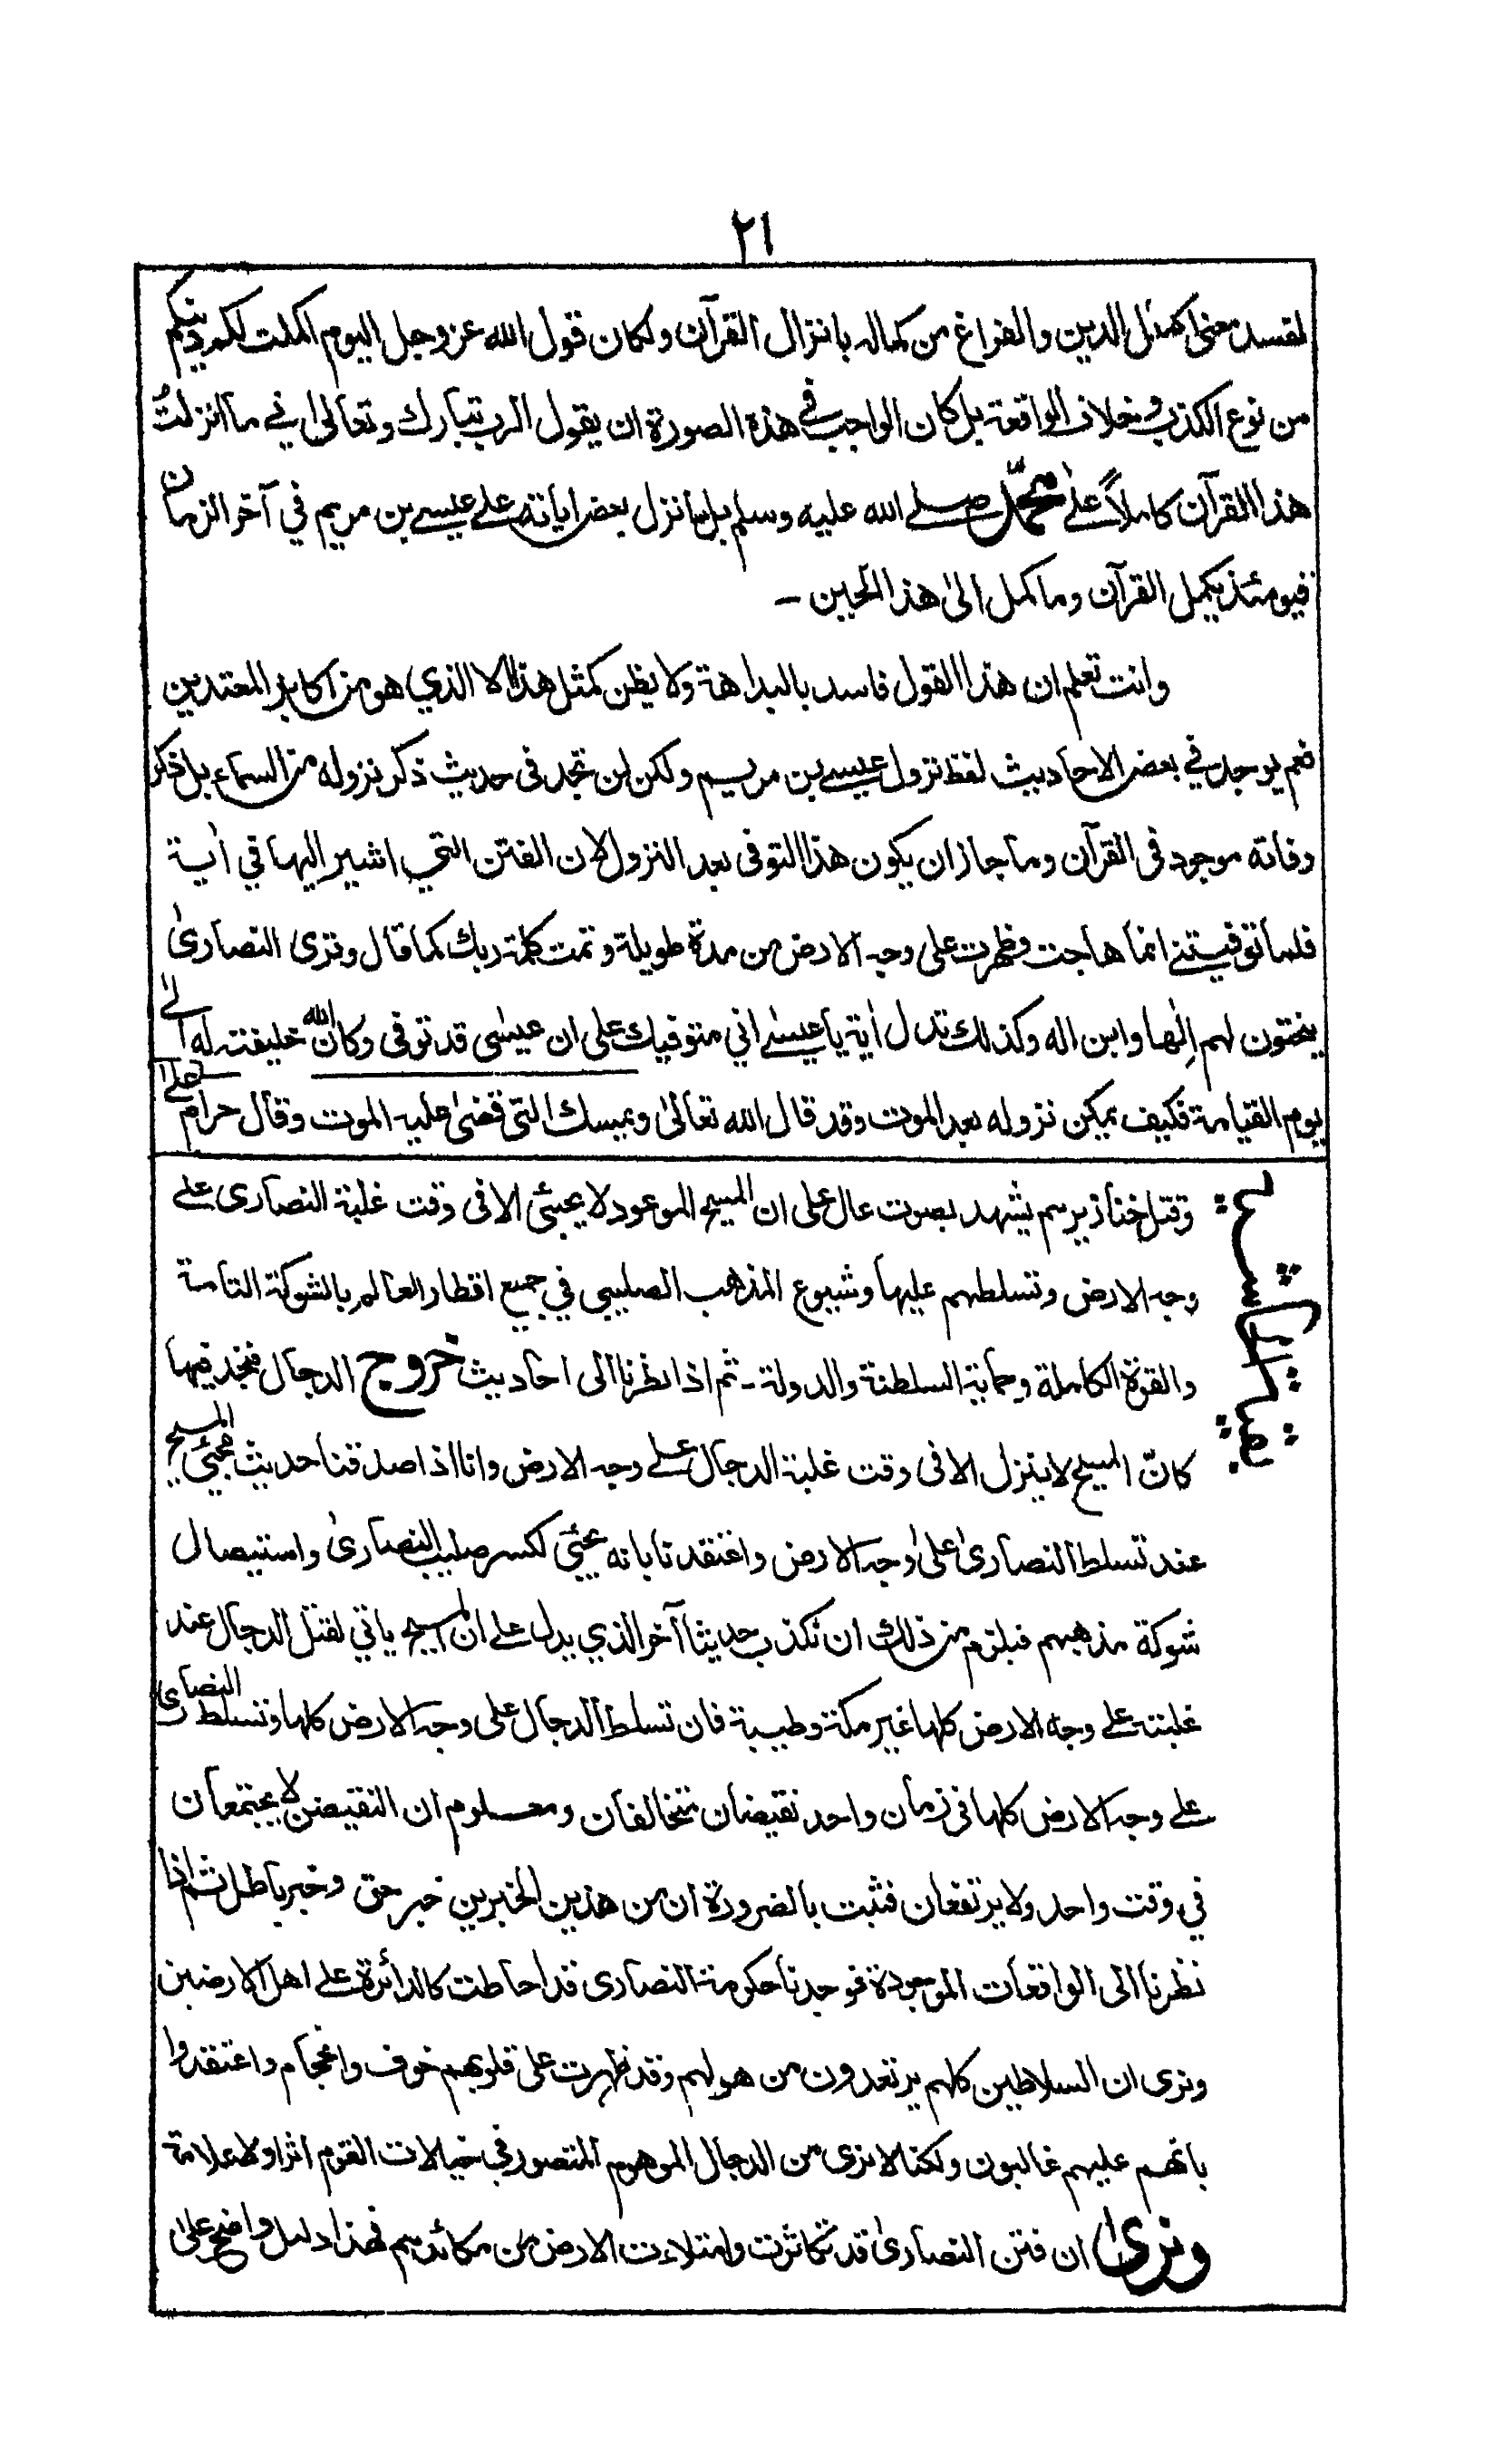 ٢١
لفسد معنى اكمال الدين والفراغ من كماله بانزال القرآن ولكان قول الله عز وجل اليوم اكملت لكم دينكم
من نوع الكذب وخلاف الواقعة بل كان الواجب في هذه الصورة ان يقول الرب تبارك وتعالى اني ما انزلتُ
هذا القرآن كاملاً على محمّد صلے الله عليه وسلم بل سانزل بعض اياته علے عيسے بن مريم في آخر الزمان
فيومئذ يكمل القرآن وما كمل الىٰ هذا الحين ــ
وانت تعلم ان هذا القول فاسد بالبداهة ولا يظن كمثل هذا الا الذي هو من اكابر المعتدين
نعم يوجد في بعض الاحاديث لفظ نزول عيسے بن مريم ولكن لن تجد فى حديث ذكر نزوله من السماء بل ذكر
وفاته موجود فى القرآن وما جاز ان يكون هذا التوفى بعد النزول لان الفتن التي اشير اليها في اٰية
فلما توفيتنے انما هاجت وظهرت على وجه الارض من مدة طويلة وتمت كلمة ربك كما قال وترى النصارىٰ
ينحتون لهم اِلٰها وابن اله وكذلك تدل اٰية يا عيسٰے اني متوفيك على ان عيسٰى قد توفى وكان الله خليفته له الے
يوم القيامة فكيف يمكن نزوله بعد الموت وقد قال الله تعالىٰ ويمسك التى قضىٰ عليه الموت وقال حرام علےٰ
بقية الحاشية
وقتل خنازيرهم يشهد بصوت عال على ان المسيح الموعود لا يجيئ الا فى وقت غلبة النصارى علے
وجه الارض وتسلطهم عليها وشيوع المذهب الصليبي في جميع اقطار العالم بالشوكة التامة
والقوة الكاملة وحماية السلطنة والدولة ـ ثم اذا نظرنا الى احاديث خروج الدجال فنجد فيها
كانّ المسيح لا ينزل الا فى وقت غلبة الدجال علے وجه الارض وانا اذا صدقنا حديث مجيئ المسيح
عند تسلط النصارىٰ علىٰ وجه الارض واعتقدنا بانه يجئي لكسر صليب النصارىٰ واستيصال
شوكة مذهبهم فيلزم من ذلك ان نكذب حديثا آخر الذي يدل علے ان المسيح ياتي لقتل الدجال عند
غلبته علے وجه الارض كلها غير مكة وطيبة فان تسلط الدجال على وجه الارض كلها وتسلط النصارى
علے وجه الارض كلها فى زمان واحد نقيضان متخالفان ومعلوم ان النقيضين لا يجتمعان
في وقت واحد ولا يرتفعان فثبت بالضرورة ان من هذين الخبرين خبر حق وخبر باطل ثم اذا
نظرنا الى الواقعات الموجودة فوجدنا حكومة النصارى قد احاطت كالدائرة علے اهل الارضين
ونرى ان السلاطين كلهم يرتعدون من هولهم وقد ظهرت على قلوبهم خوف واعجام واعتقدوا
بانهم عليهم غالبون ولكنا لا نرى من الدجال الموهوم المتصور في خيالات القوم اثرا ولا علامة
ونرىٰ ان فتن النصارىٰ قد تكاثرت وامتلاءت الارض من مكائدهم فهذا دليل واضح علىٰ